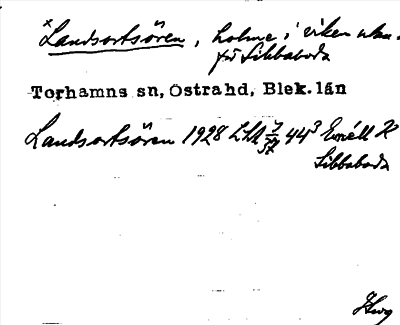 x Landsortsören, holme i viken utan-
för Sibbaboda
Torhamns sn, Östra hd, Blek. län
Landsortsören 1928 Lhl 7/37 44³
Sibbaboda